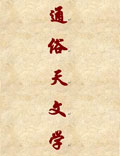 通俗天文学